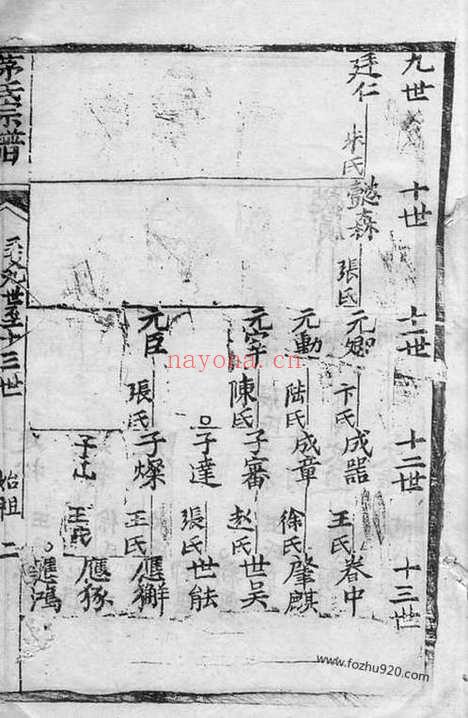 九世
十世
十一世
十二世
十三世
廷仁
朱氏
懿森
張氏
元卿
卞氏
成器
王氏
春中
元勳
陆氏
成章
徐氏
肇麒
元宰
陳氏
子審
赵氏
世吴
子達
張氏
世能
元臣
張氏
子燦
王氏
應獬
王氏
應豸
應鴻
茅氏宗譜
九世至十三世
始祖
二
nayona.cn
www.fozhu920.com